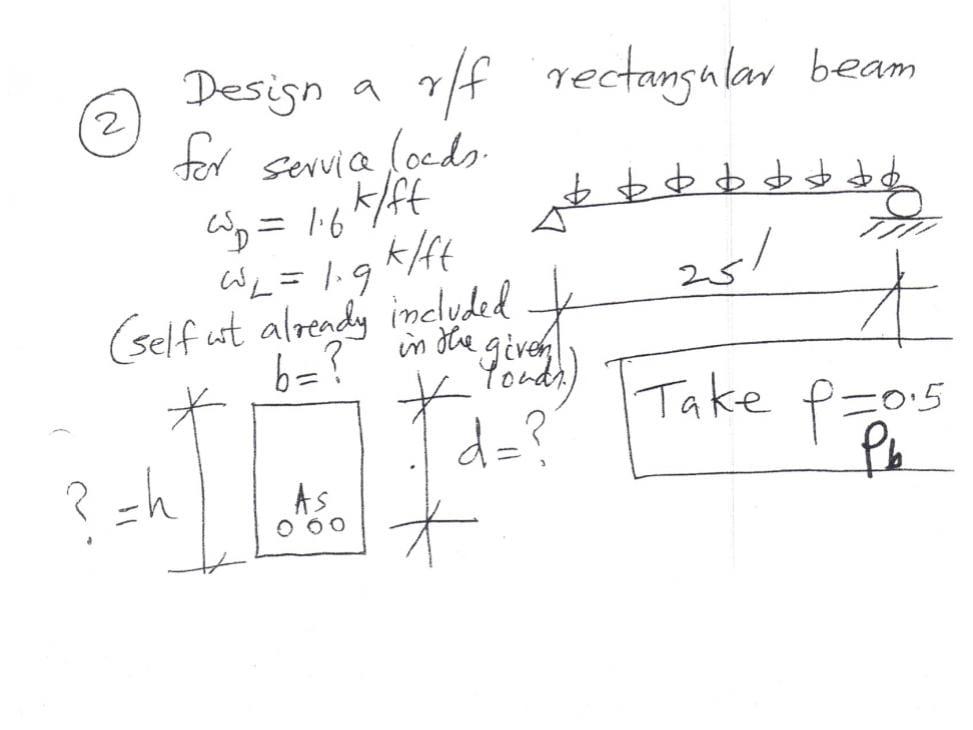 ② Design a r/f rectangular beam
for service loads.
ω_D = 1.6 k/ft
ω_L = 1.9 k/ft
(self wt already included
in the given
loads)
25'
b=?
? =h
As
d=?
Take ρ=0.5
ρb